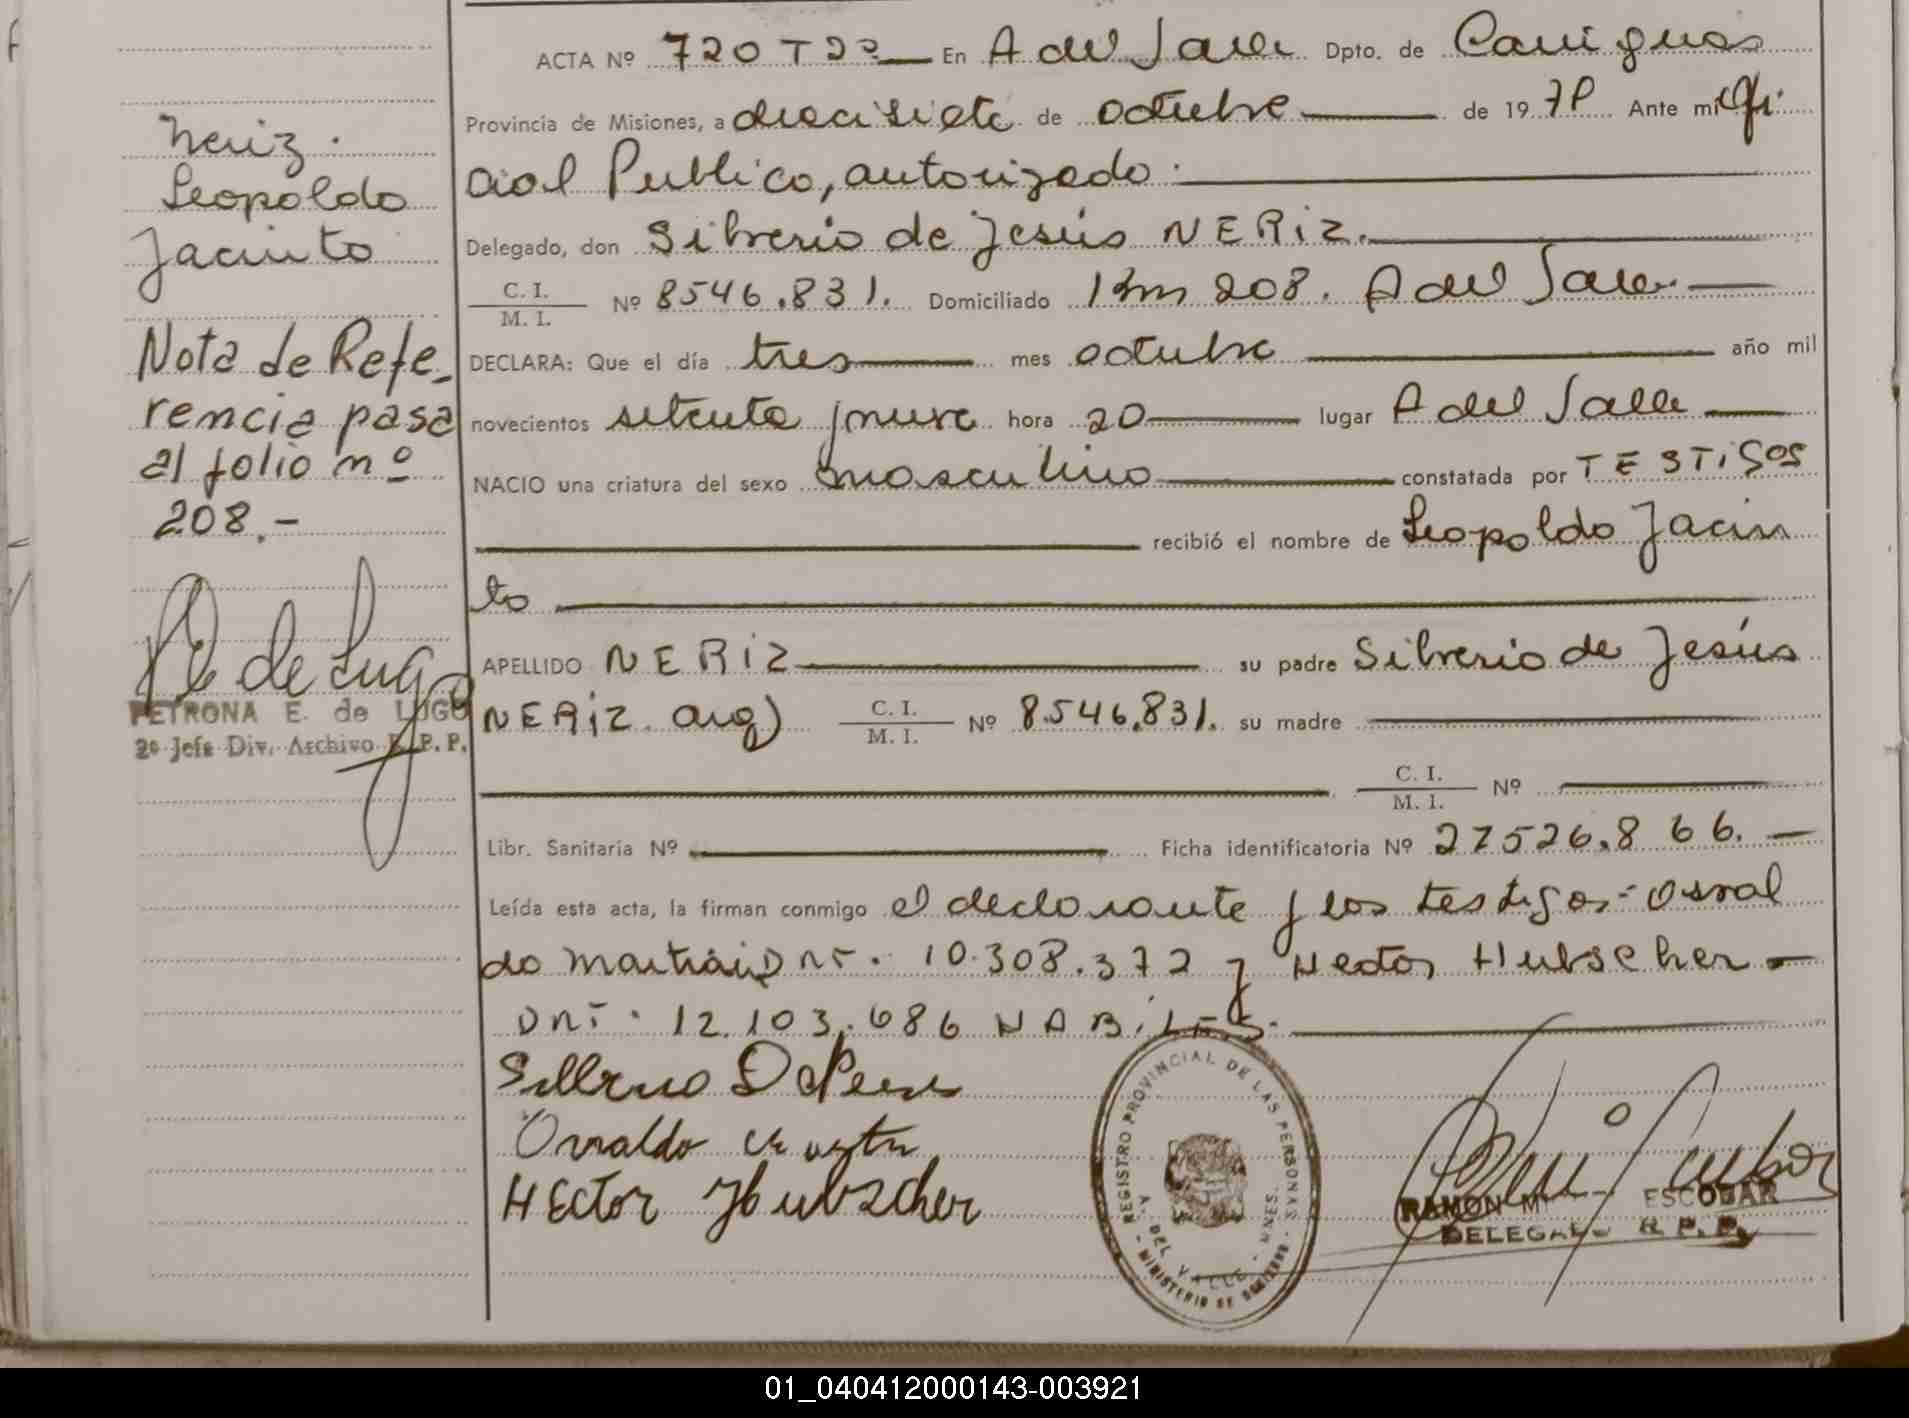 ACTA Nº 720 T 2º En A del Valle Dpto. de Cainguas
Provincia de Misiones, a diecisiete de octubre de 19 79 Ante mi Ofi
cial Publico, autorizado.
Delegado, don Silverio de Jesús NERiZ.
C. I. / M. I. Nº 8546.831. Domiciliado Km 208. A del Valle
DECLARA: Que el día tres mes octubre año mil
novecientos setenta y nueve hora 20 lugar A del Valle
NACIO una criatura del sexo masculino constatada por TESTiGOS
recibió el nombre de Leopoldo Jacin
to
APELLIDO NERiZ su padre Silverio de Jesús
NERiZ arg) C. I. / M. I. Nº 8.546.831. su madre
C. I. / M. I. Nº
Libr. Sanitaria Nº Ficha identificatoria Nº 27526.866.
Leída esta acta, la firman conmigo el declarante y los testigos: Osval
do DNI. 10.308.372 y Hector Hubscher
DNI. 12.103.686 HABiLES.
Osvaldo
HEctor Hubscher
REGISTRO PROVINCIAL DE LAS PERSONAS
A. DEL VALLE - MNES.
MINISTERIO DE GOBIERNO
RAMON ESCOBAR
DELEGADO R. P. P.
Neriz.
Leopoldo
Jacinto
Nota de Refe-
rencia pasa
al folio nº
208.-
de Lugo
PETRONA E. de LUGO
2º Jefe Div. Archivo R. P. P.
01_040412000143-003921